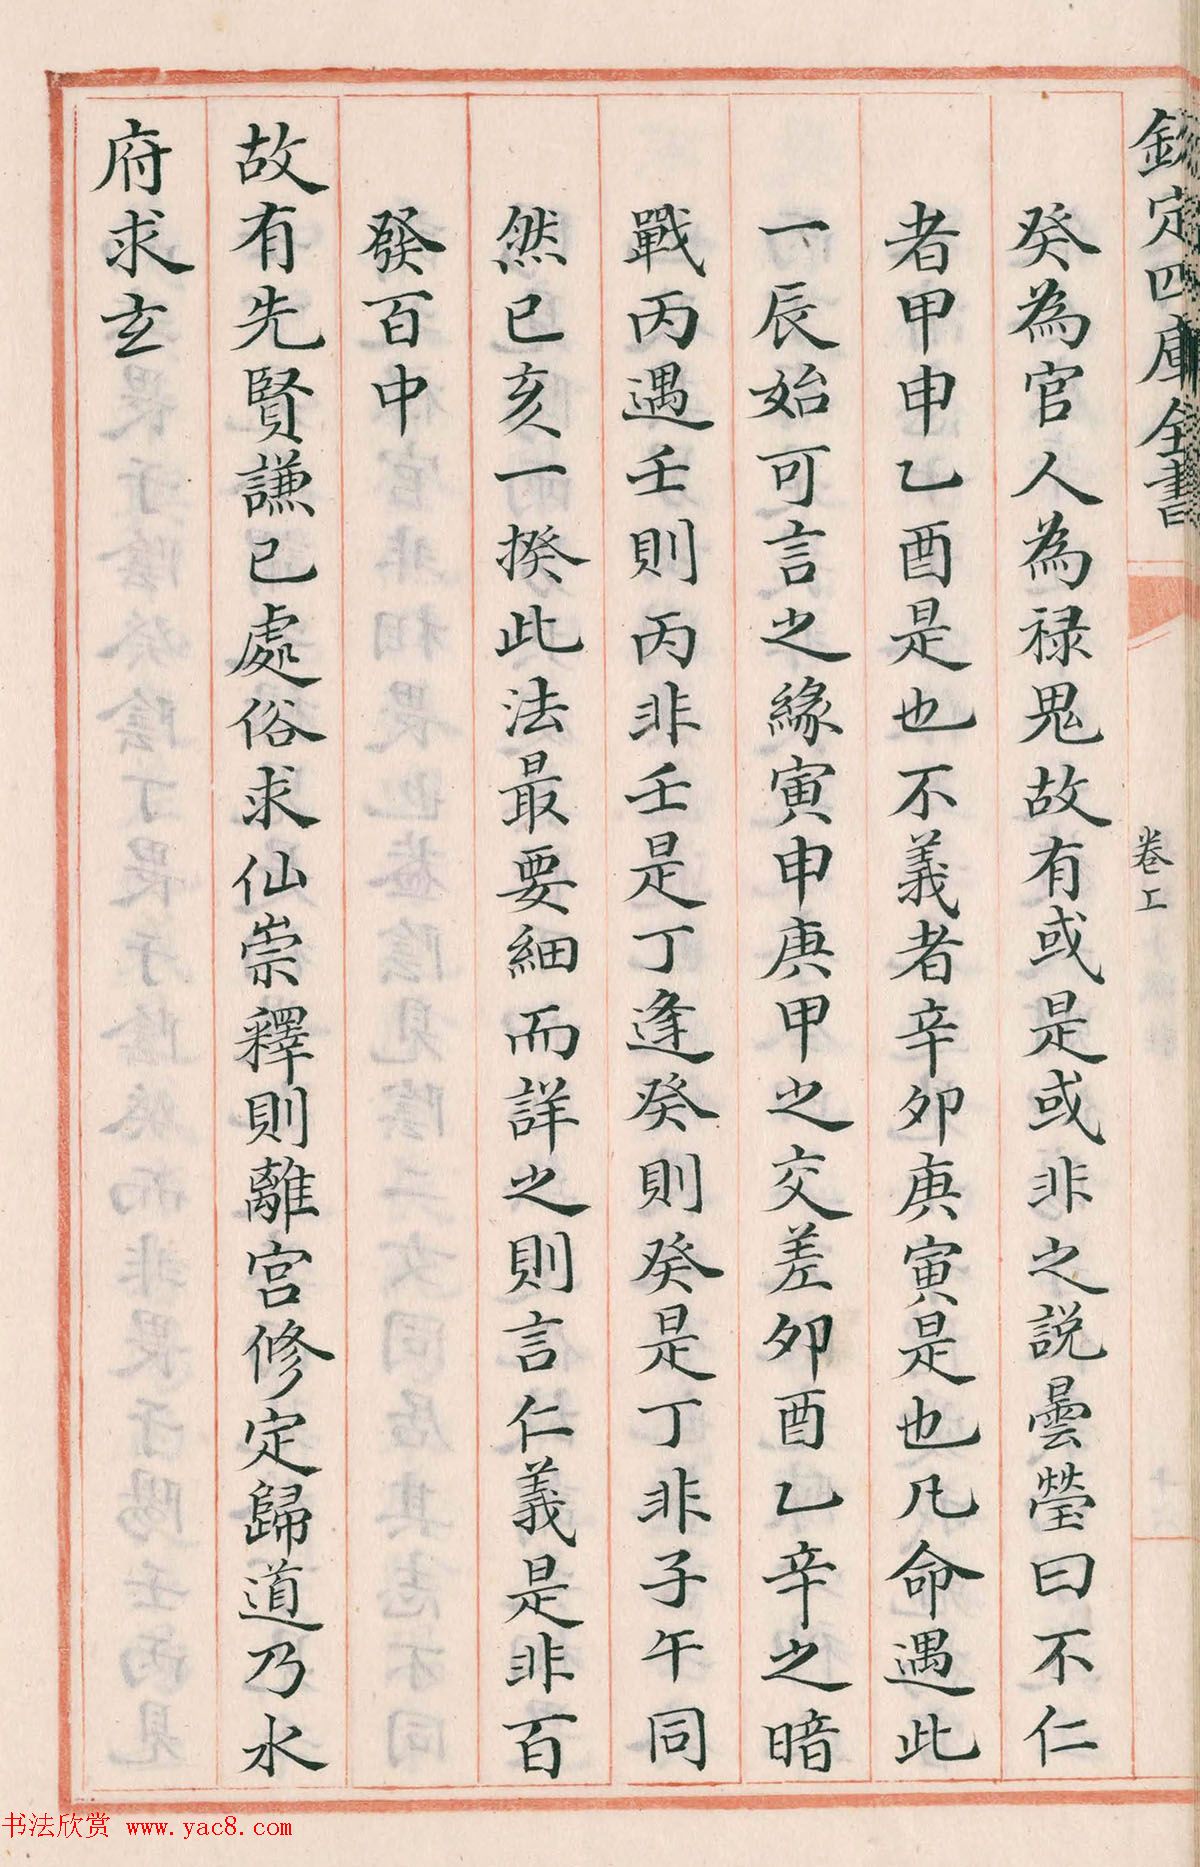 欽定四庫全書
卷上
癸為官人為禄鬼故有或是或非之説曇瑩曰不仁
者甲申乙酉是也不義者辛夘庚寅是也凡命遇此
一辰始可言之緣寅申庚甲之交差夘酉乙辛之暗
戰丙遇壬則丙非壬是丁逢癸則癸是丁非子午同
然巳亥一揆此法最要細而詳之則言仁義是非百
發百中
故有先賢謙已處俗求仙崇釋則離宫修定歸道乃水
府求玄
书法欣赏 www.yac8.com